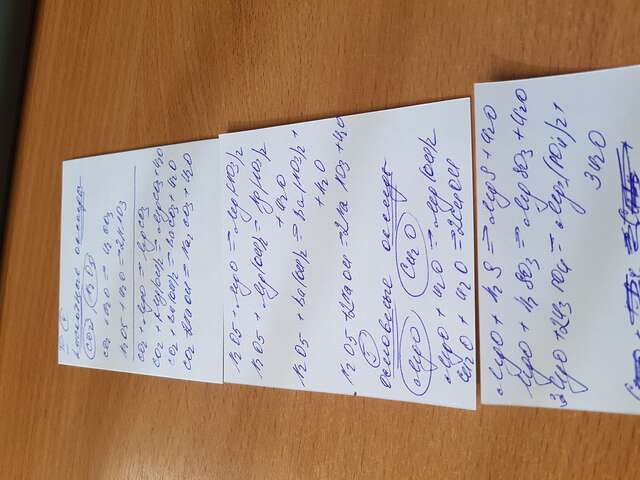 Кислотные оксиды
CO2, N2O5
CO2 + H2O = H2CO3
N2O5 + H2O = 2HNO3
CO2 + MgO = MgCO3
CO2 + Mg(OH)2 = MgCO3 + H2O
CO2 + Ba(OH)2 = BaCO3 + H2O
CO2 + 2NaOH = Na2CO3 + H2O
N2O5 + MgO = Mg(NO3)2
N2O5 + Mg(OH)2 = Mg(NO3)2
+ H2O
N2O5 + Ba(OH)2 = Ba(NO3)2 +
+ H2O
N2O5 + 2NaOH = 2NaNO3 + H2O
Основные оксиды
MgO Cu2O
MgO + H2O = Mg(OH)2
Cu2O + H2O = 2CuOH
MgO + H2S = MgS + H2O
MgO + H2SO3 = MgSO3 + H2O
3MgO + 2H3PO4 = Mg3(PO4)2 +
3H2O